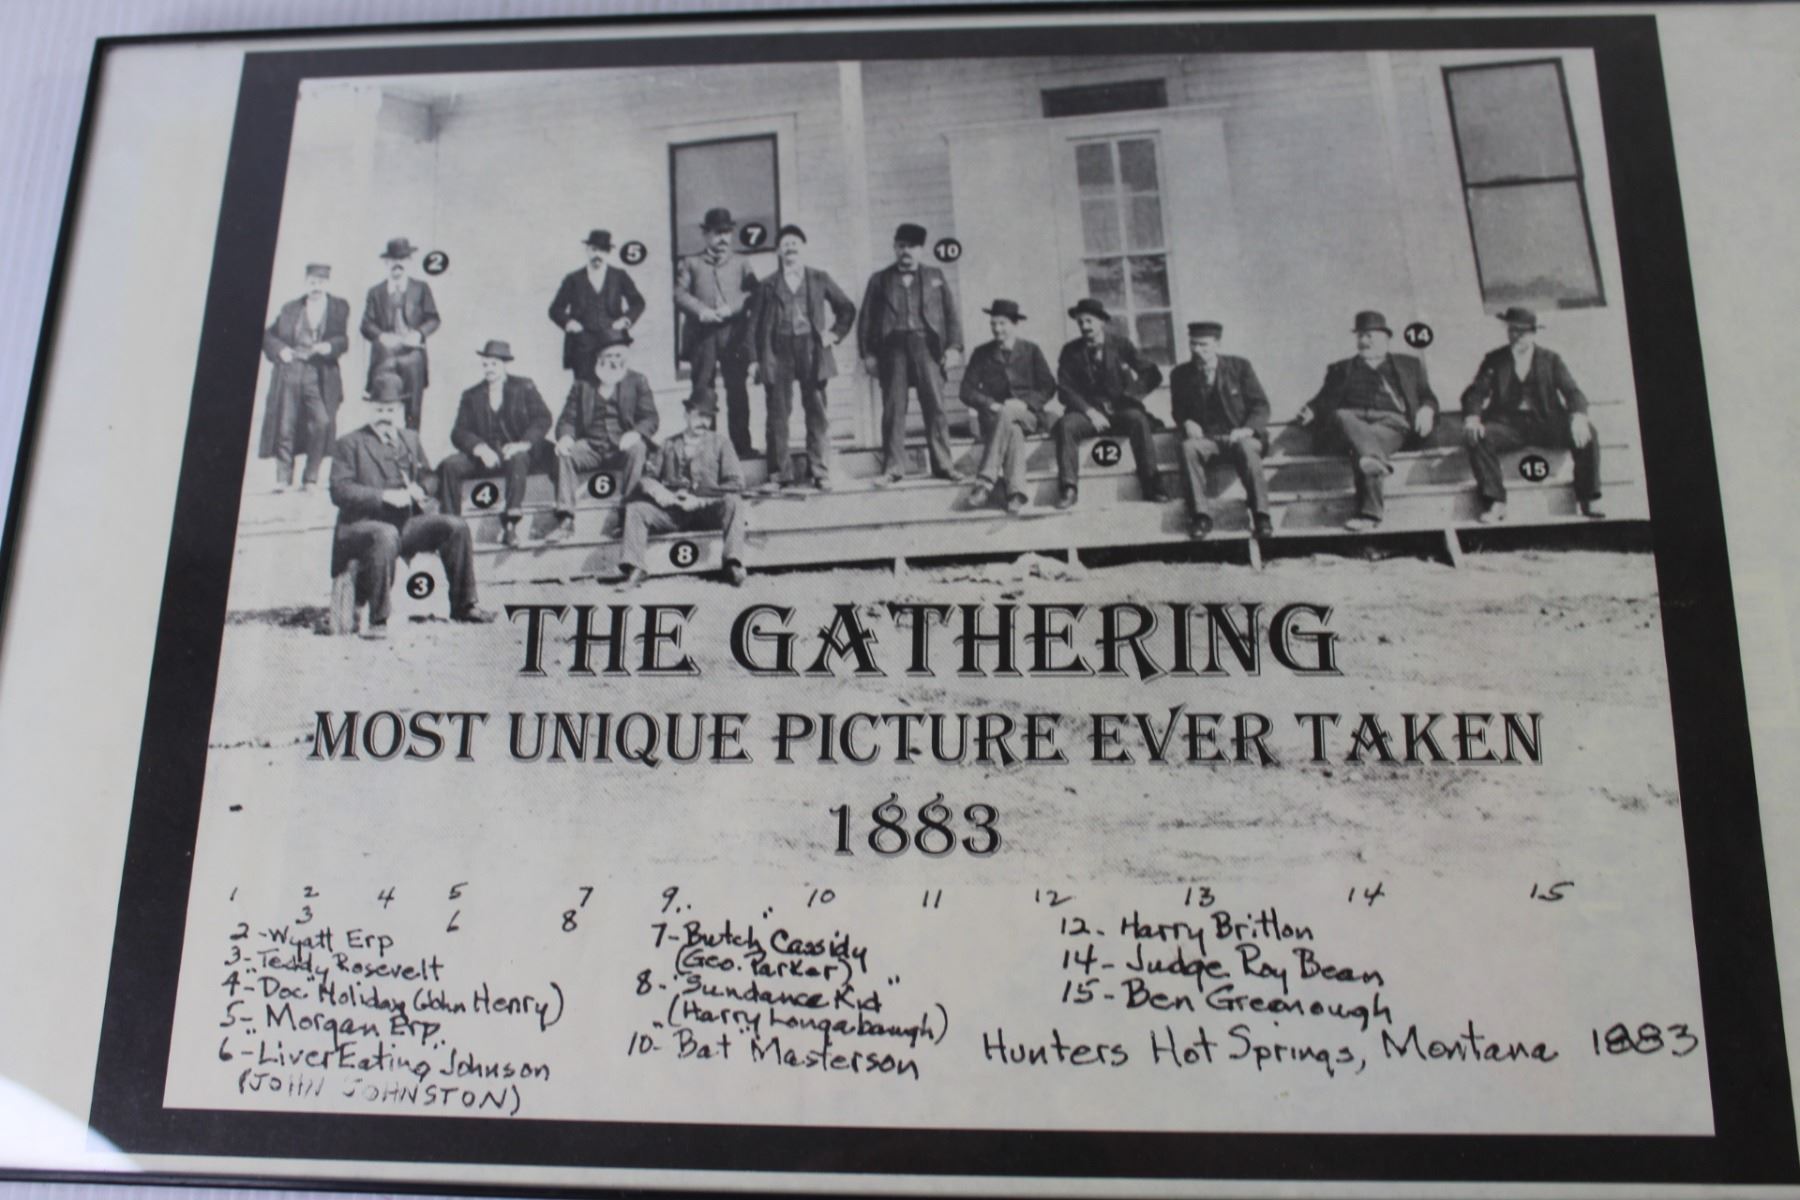 2
5
7
10
14
12
15
4
6
8
3
THE GATHERING
MOST UNIQUE PICTURE EVER TAKEN
1883
1 2 4 5 7 9.. " 10 11 12 13 14 15
3 6 8
2-Wyatt Erp
3-Teddy Rosevelt
4-"Doc" Holiday (John Henry)
5-Morgan Erp
6-"Liver Eating" Johnson
(JOHN JOHNSTON)
7-Butch Cassidy
(Geo. Parker)
8-"Sundance Kid"
(Harry Longabaugh)
10-"Bat" Masterson
12-Harry Britton
14-Judge Roy Bean
15-Ben Greenough
Hunters Hot Springs, Montana 1883